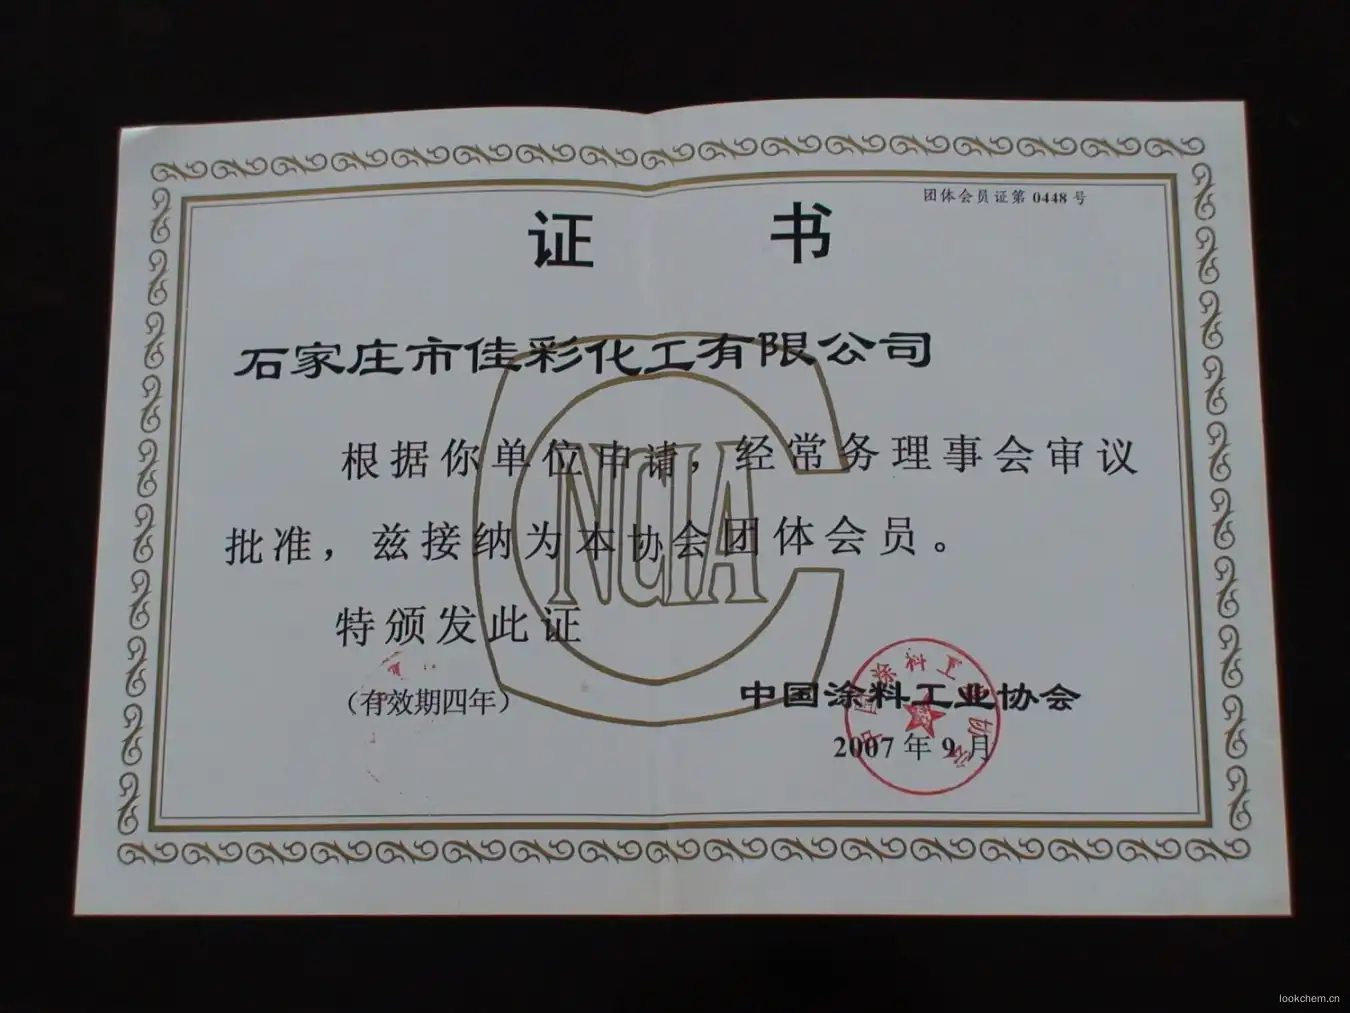 团体会员证第 0448 号
证 书
石家庄市佳彩化工有限公司
根据你单位申请，经常务理事会审议
批准，兹接纳为本协会团体会员。
特颁发此证
（有效期四年）
中国涂料工业协会
2007 年 9 月
中国涂料工业协会
CNCIA
lookchem.cn